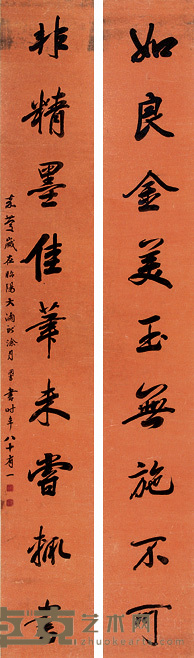 如良金美玉無施不可
非精墨佳筆未嘗輒書
素菴
歲在昭陽大淵獻涂月 書時年八十有一
艺术网